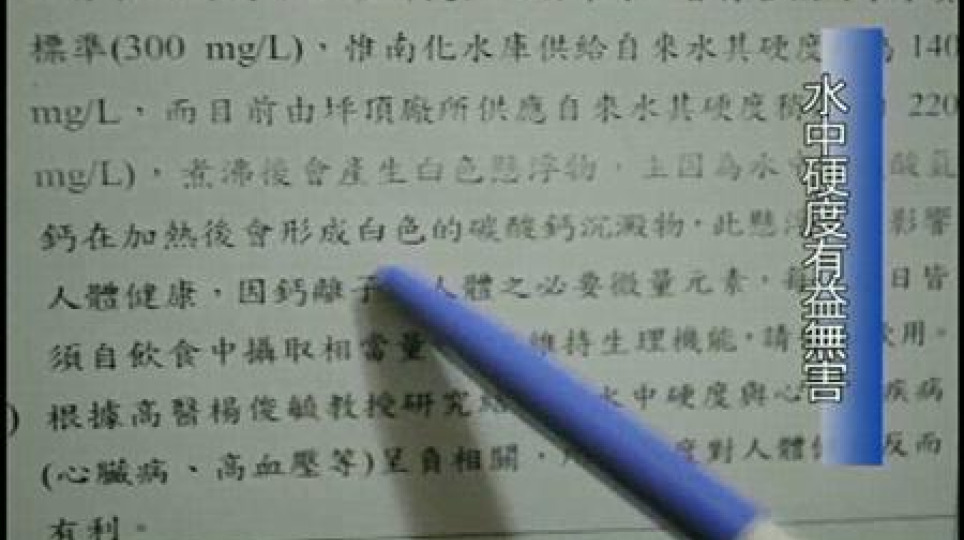 標準(300 mg/L)，惟南化水庫供給自來水其硬度 為 140
mg/L，而目前由坪頂廠所供應自來水其硬度 220
mg/L)，煮沸後會產生白色懸浮物，主因為水 酸氫
鈣在加熱後會形成白色的碳酸鈣沉澱物，此懸浮 影響
人體健康，因鈣離子 人體之必要微量元素，每 日皆
須自飲食中攝取相當量 維持生理機能，請 飲用。
) 根據高醫楊俊毓教授研究結 水中硬度與心 疾病
(心臟病、高血壓等)呈負相關， 度對人體健 反而
有利。
水中硬度有益無害